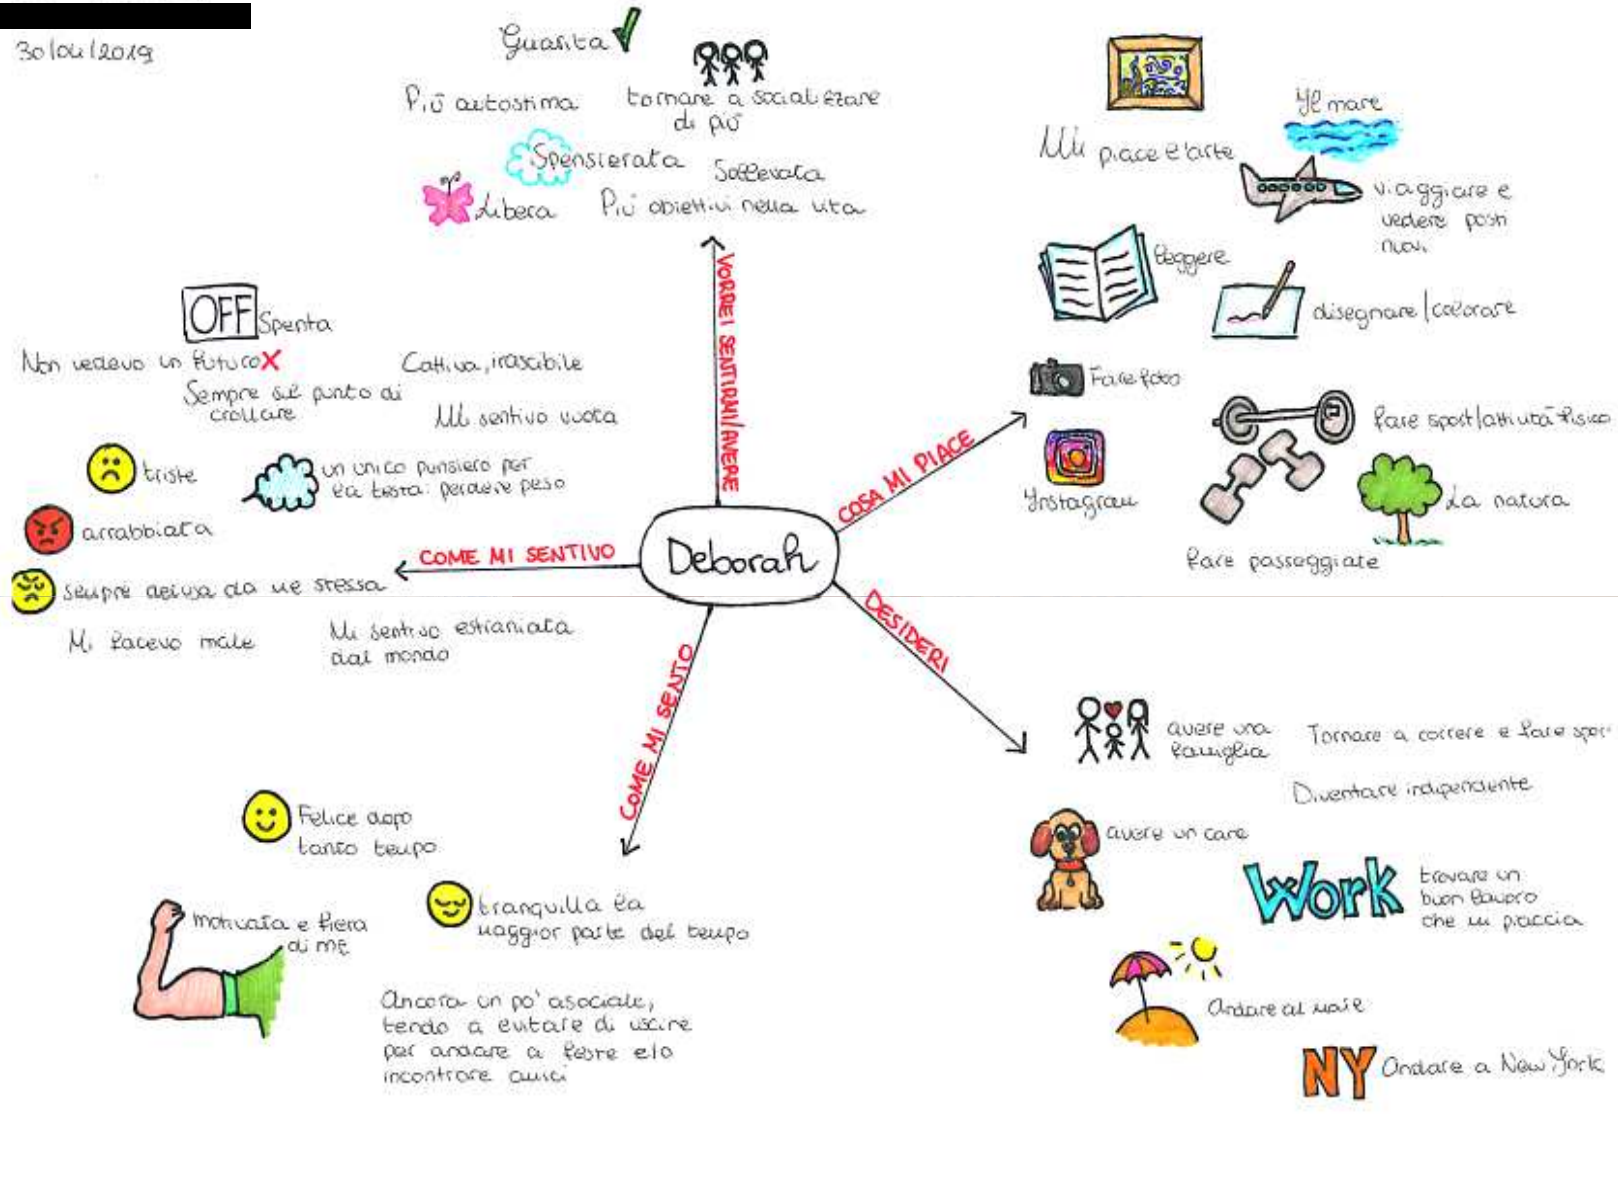 30/04/2019
Guarita
Più autostima
tornare a socializzare
di più
Spensierata
Sollevata
Libera
Più obiettivi nella vita
VORREI SENTIRMI/AVERE
Mi piace l'arte
Il mare
viaggiare e
vedere posti
nuovi
leggere
disegnare/colorare
Fare foto
Instagram
fare sport/attività fisica
La natura
fare passeggiate
COSA MI PIACE
OFF
Spenta
Non vedevo un futuro X
Cattiva, irascibile
Sempre sul punto di
crollare
Mi sentivo vuota
triste
un unico pensiero per
la testa: perdere peso
arrabbiata
sempre delusa da me stessa
Mi facevo male
Mi sentivo estraniata
dal mondo
COME MI SENTIVO
Deborah
COME MI SENTO
Felice dopo
tanto tempo
motivata e fiera
di me
tranquilla la
maggior parte del tempo
Ancora un po' asociale,
tendo a evitare di uscire
per andare a feste e/o
incontrare amici
DESIDERI
avere una
famiglia
Tornare a correre e fare spor
Diventare indipendente
avere un cane
Work
trovare un
buon lavoro
che mi piaccia
Andare al mare
NY
Andare a New York